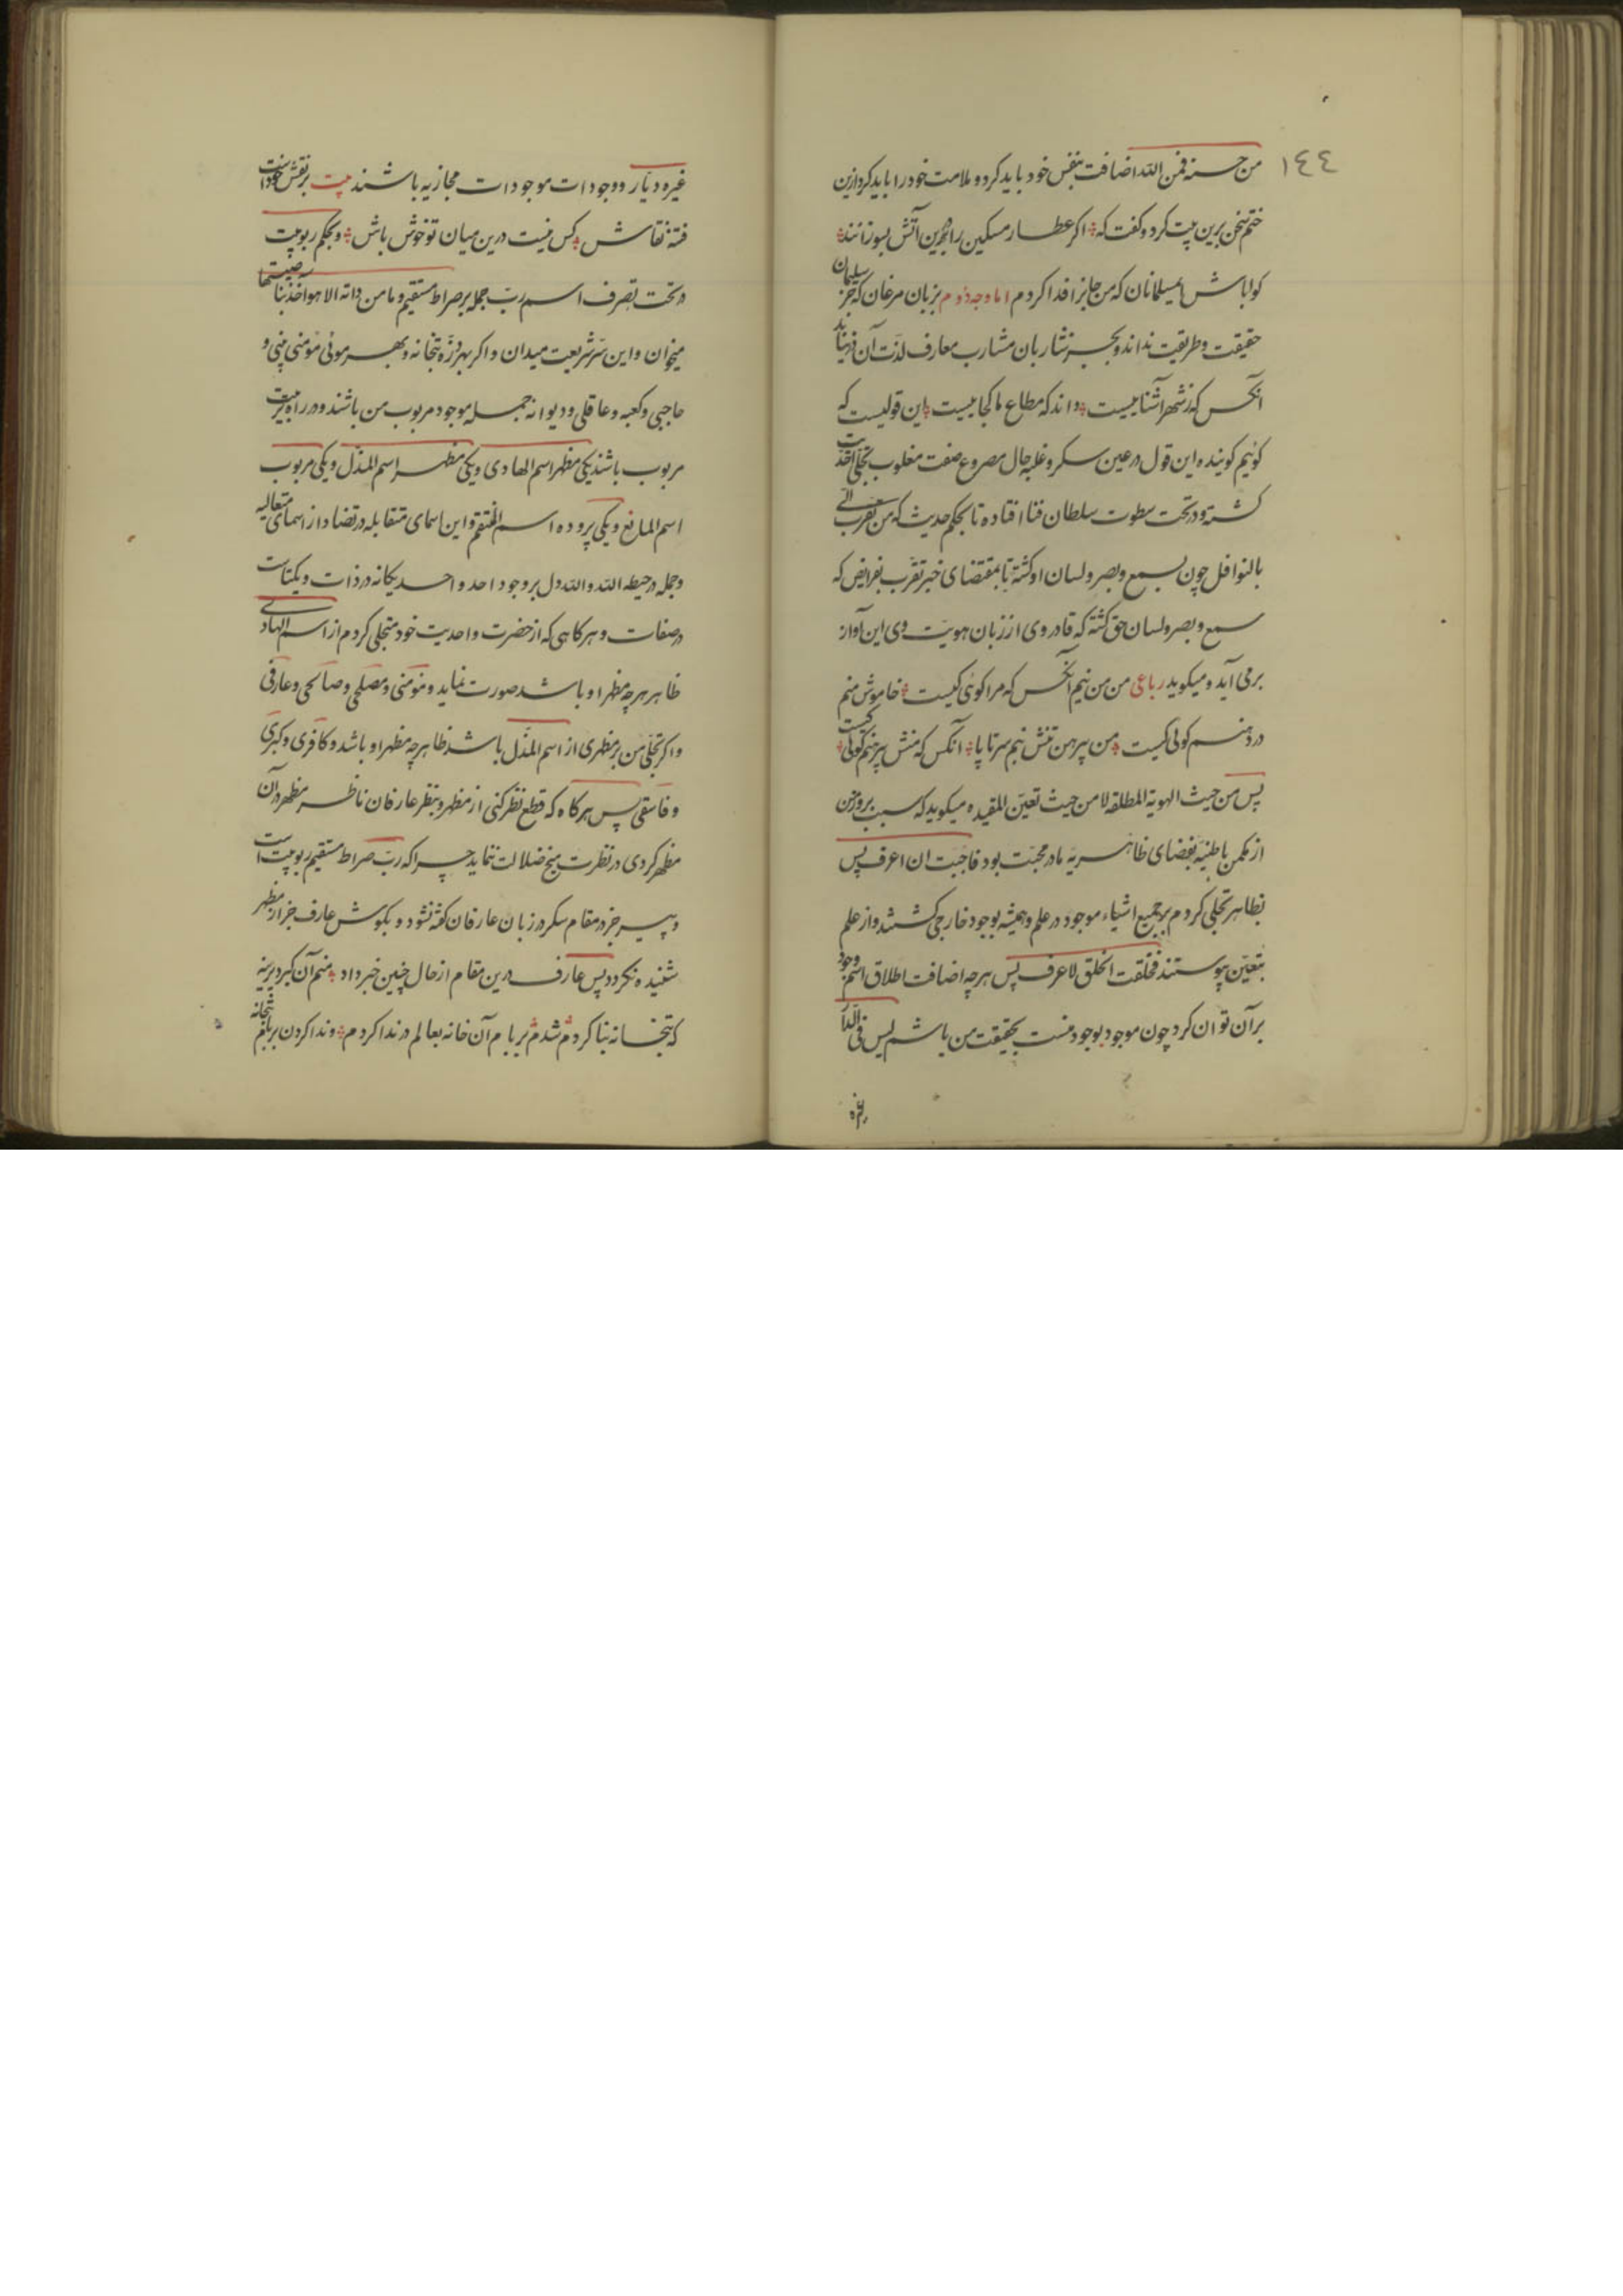 ١٤٤
من حسنة فمن الله اضافت بنفس خود باید کرد و ملامت خود را باید کرد و ازین
ختم سخن برین بیت کرد و گفت که اکر عطار مسکین را درین آتش بسوزانند
کواباش ای مسلمانان که من جانرا فدا کردم اما وجه دوم بزبان مرغان که جز سلیمان
حقیقت و طریقت نداند و بجز شاربان مشارب معارف لذت آن درنیابد
آنکس که ز شهر آشناییست داند که متاع ما کجاییست این قولیست که
کوئیم کوینده این قول در عین سکر و غلبه حال مصروع صفت مغلوب تجلی احدیت
کشته و در تحت سطوت سلطان فنا افتاده تا بحکم حدیث که من تقرب الی
بالنوافل چون سمع و بصر و لسان او کشته تا بمقتضای خبر تقرب بفرایض که
سمع و بصر و لسان حق کشته که قادر وی از زبان هویت وی این آواز
برمی آید و میکوید رباعی من من نیم آنکس که مرا کوئی کیست خاموش منم
در دهنم کوئی کیست من پیرهن تنش نیم سر تا پا آنکس که منش پیرهنم کوئی کیست
پس من حیث الهویة المطلقه لا من حیث تعین المقیده میکوید که سبب بروز من
از مکمن باطنیه بفضای ظاهریه مادر محبت بود فاحببت ان اعرف پس
بظاهر تجلی کردم بر جمیع اشیاء موجود در علم و همیشه بوجود خارجی کشتند و از علم
بتعین پیوستند فخلقت الخلق لاعرف پس هرچه اضافت اطلاق اسم وجود
بر آن توان کرد چون موجود بوجود منست بحقیقت من باشم لیس فی الدار
غیره
غیره دیار و وجودات موجودات مجازیه باشند بیت بر نقش خود است
فتنه نقاش کس نیست درین میان تو خوش باش و بحکم ربوبیت
در تحت تصرف اسم رب جمله بر صراط مستقیم و ما من دابه الا هو آخذ بناصیتها
میخوان و این سر شریعت میدان و اکر بهر ذره بتخانه و بهر موئی مؤمنی بینی و
حاجبی و کعبه و عاقلی و دیوانه جمله موجود مربوب من باشند و در راه
مربوب باشند یکی مظهر اسم الهادی و یکی مظهر اسم المذل و یکی مربوب
اسم المانع و یکی پرورده اسم المنتقم و این اسمای متقابله در تضاد از اسمای متعالیه
و جمله در حیطه الله و الله دل بر وجود احد و احد یکانه در ذات و یکتاست
در صفات و هر کاهی که از حضرت واحدیت خود متجلی کردم از اسم الهادی
ظاهر هرچه مظهر او باشد صورت نماید و مؤمنی و مصلحی و صالحی و عارفی
و اکر تجلی من بر مظهری از اسم المذل باشد ظاهر هرچه مظهر او باشد و کافری و کبری
و فاسقی پس هرکاه که قطع نظر کنی از مظهر و بنظر عارفان ناظر مظهر در آن
مظهر کردی در نظرت هیچ ضلالت ننماید چرا که رب صراط مستقیم ربوبیت است
و جز در مقام سکر در زبان عارفان کفته نشود و بکوش عارف جز از مظهر
شنیده نکردد پس عارف درین مقام از حال چنین خبر داد منم آن کبر دیرینه
که بتخانه بنا کردم شدم بر بام آن خانه بعالم در ندا کردم و ندا کردن بر بام بتخانه